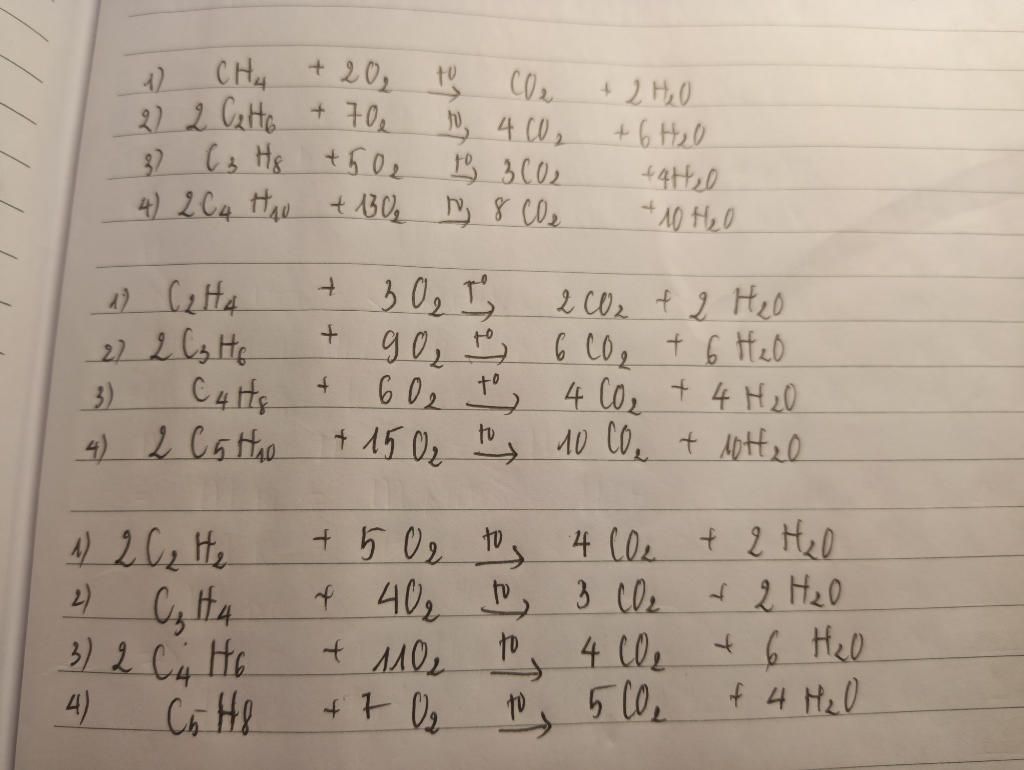 1) CH₄ + 2O₂ →(t⁰) CO₂ + 2H₂O
2) 2C₂H₆ + 7O₂ →(t⁰) 4CO₂ + 6H₂O
3) C₃H₈ + 5O₂ →(t⁰) 3CO₂ + 4H₂O
4) 2C₄H₁₀ + 13O₂ →(t⁰) 8CO₂ + 10H₂O
1) C₂H₄ + 3O₂ →(t⁰) 2CO₂ + 2H₂O
2) 2C₃H₆ + 9O₂ →(t⁰) 6CO₂ + 6H₂O
3) C₄H₈ + 6O₂ →(t⁰) 4CO₂ + 4H₂O
4) 2C₅H₁₀ + 15O₂ →(t⁰) 10CO₂ + 10H₂O
1) 2C₂H₂ + 5O₂ →(t⁰) 4CO₂ + 2H₂O
2) C₃H₄ + 4O₂ →(t⁰) 3CO₂ + 2H₂O
3) 2C₄H₆ + 11O₂ →(t⁰) 4CO₂ + 6H₂O
4) C₅H₈ + 7O₂ →(t⁰) 5CO₂ + 4H₂O